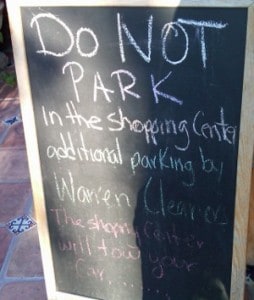 Do NOT
PARK
in the shopping Center
additional parking by
Warren
The shopping Center
will tow your
Car......